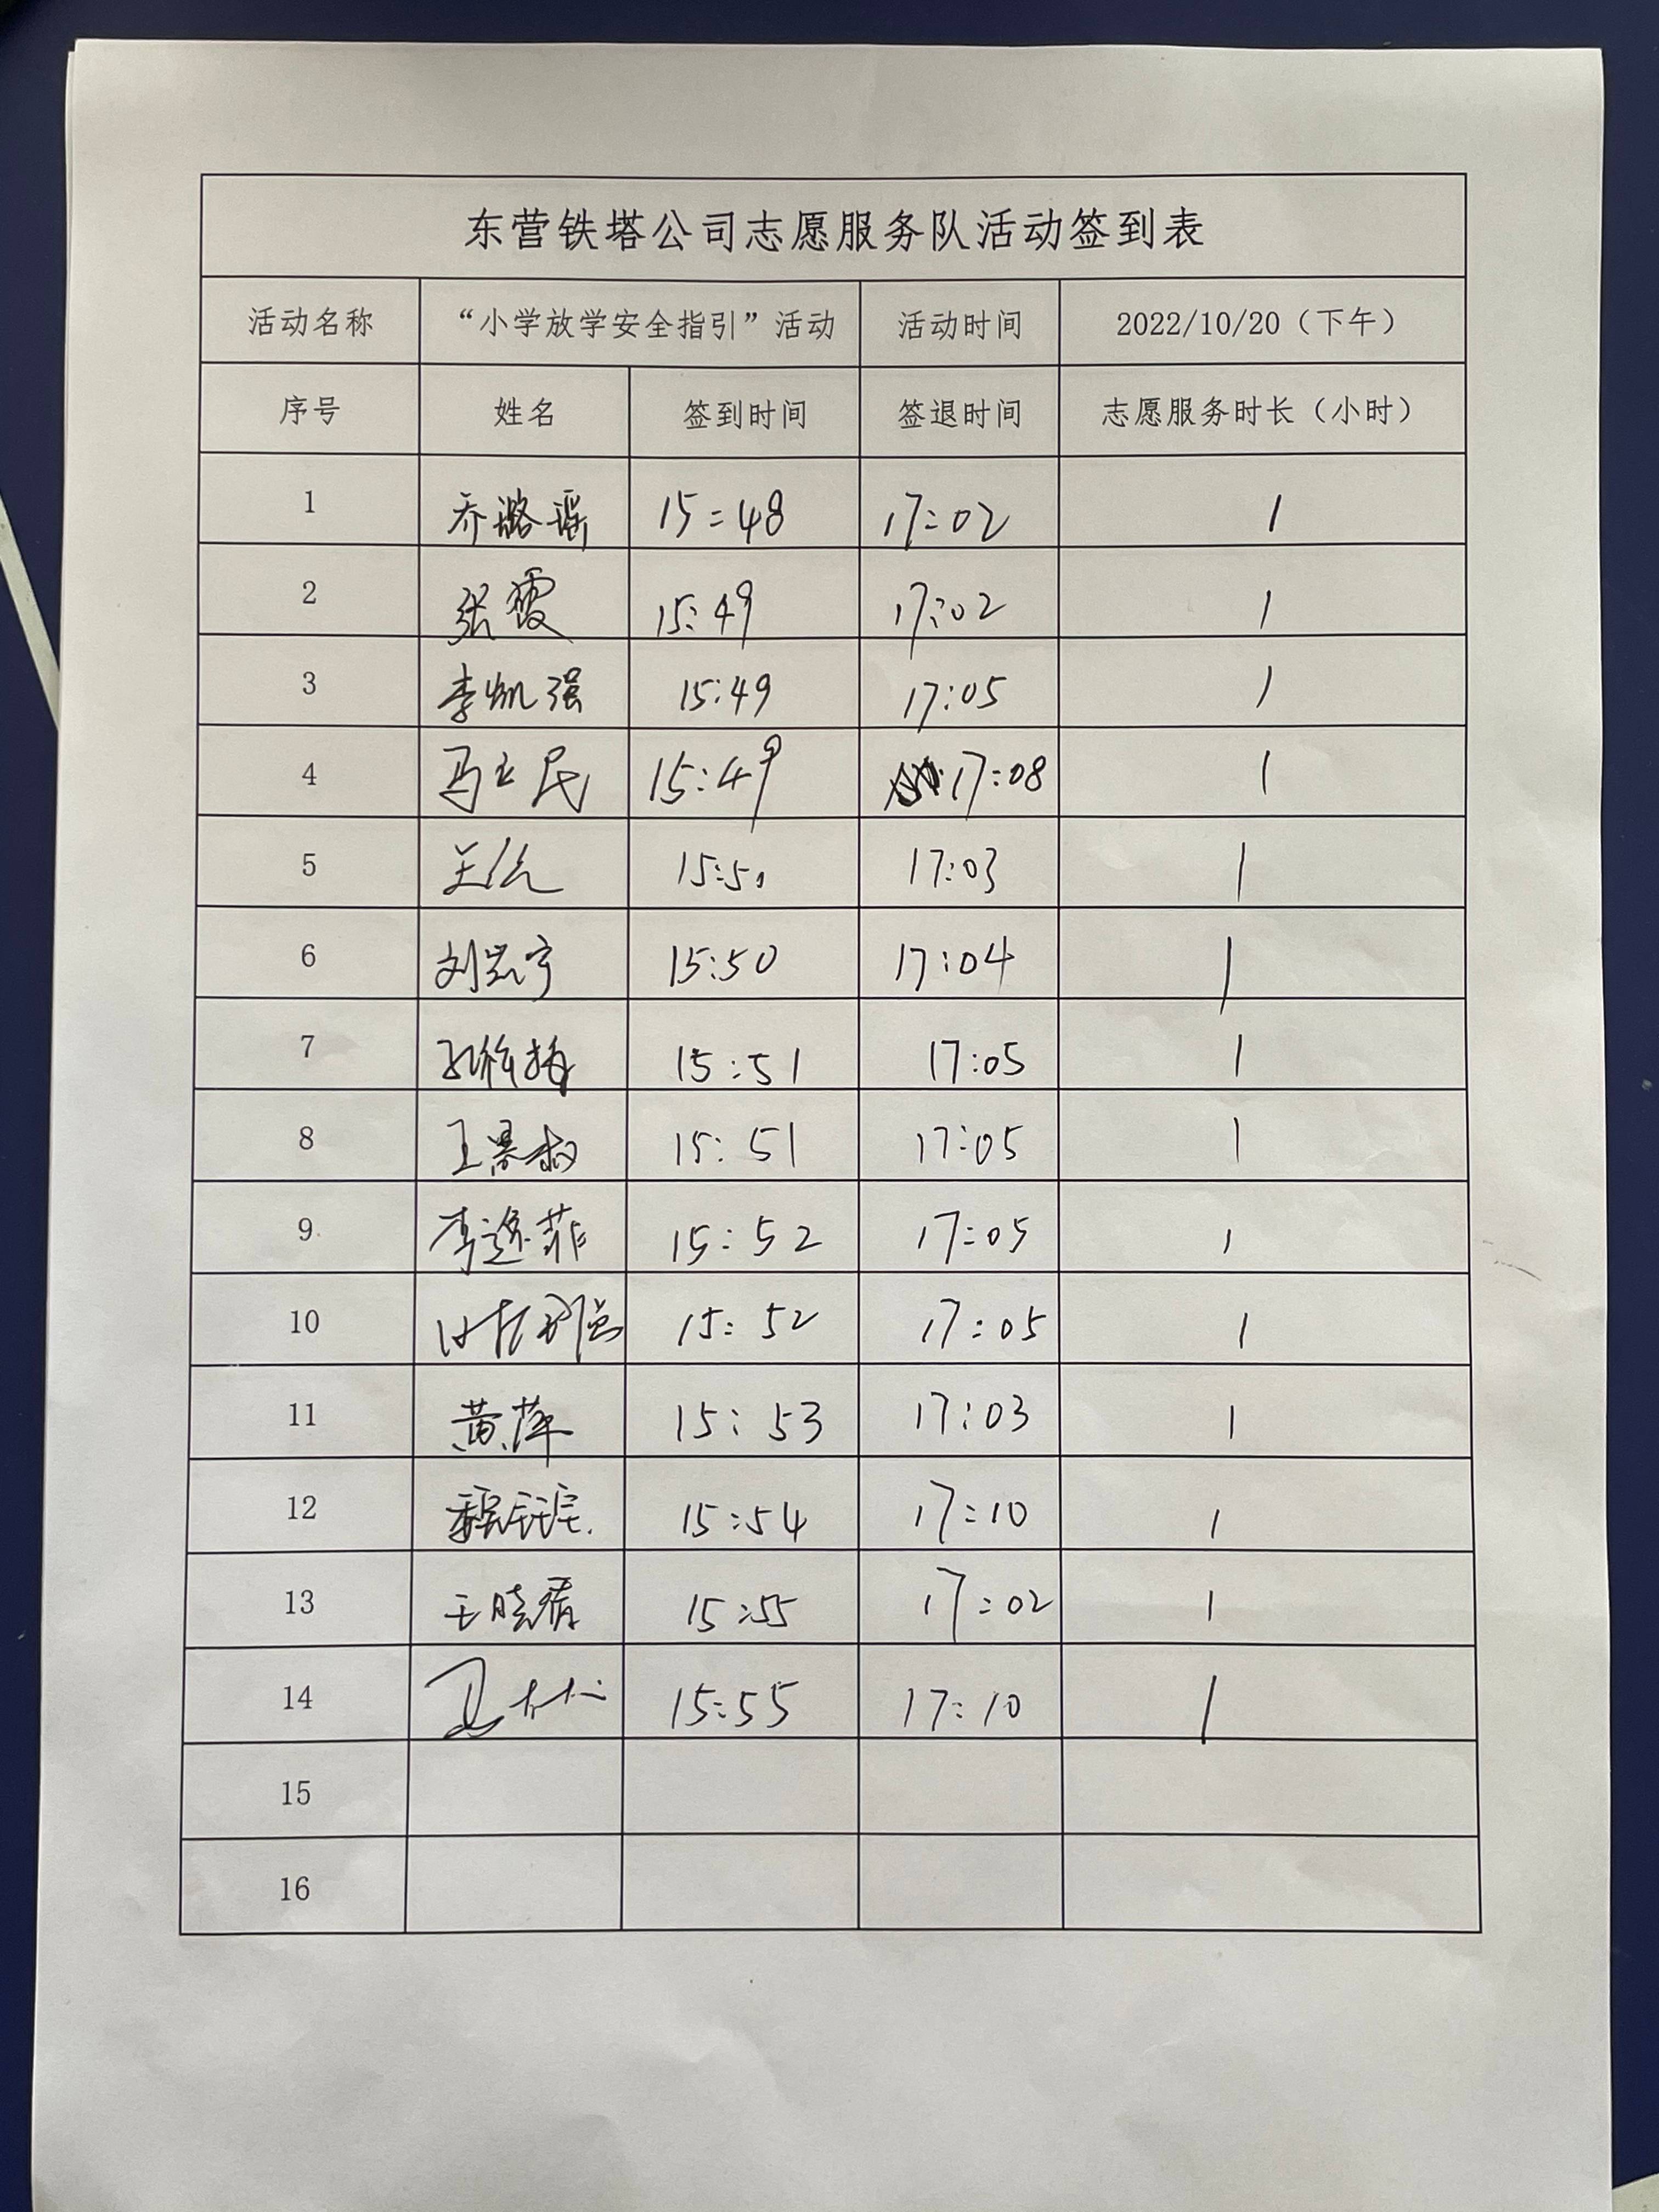 东营铁塔公司志愿服务队活动签到表
活动名称 “小学放学安全指引”活动 活动时间 2022/10/20（下午）
序号 姓名 签到时间 签退时间 志愿服务时长（小时）
1 乔璐瑶 15:48 17:02 1
2 张霞 15:49 17:02 1
3 李凯强 15:49 17:05 1
4 马立民 15:49 17:08 1
5 15:50 17:03 1
6 15:50 17:04 1
7 15:51 17:05 1
8 15:51 17:05 1
9 15:52 17:05 1
10 15:52 17:05 1
11 黄萍 15:53 17:03 1
12 15:54 17:10 1
13 王晓君 15:55 17:02 1
14 15:55 17:10 1
15
16